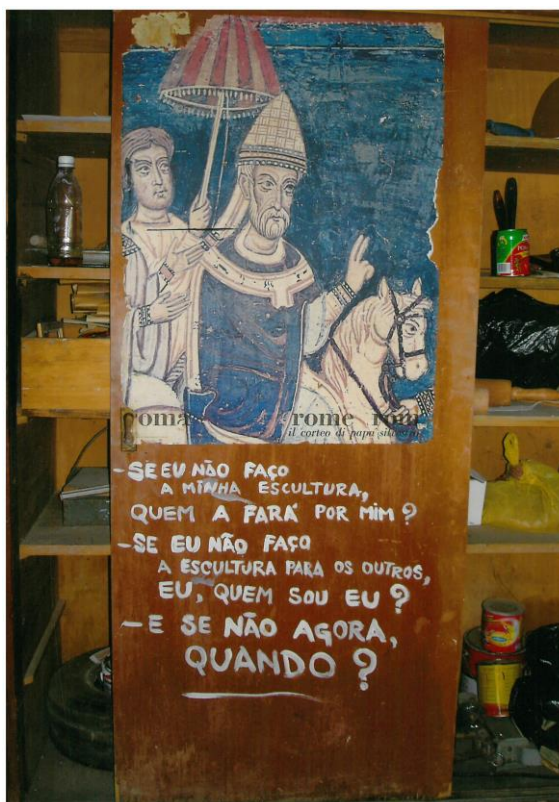 roma rome rom
il corteo di papa silvestro
- SE EU NÃO FAÇO
A MINHA ESCULTURA,
QUEM A FARÁ POR MIM?
- SE EU NÃO FAÇO
A ESCULTURA PARA OS OUTROS,
EU, QUEM SOU EU?
- E SE NÃO AGORA,
QUANDO?